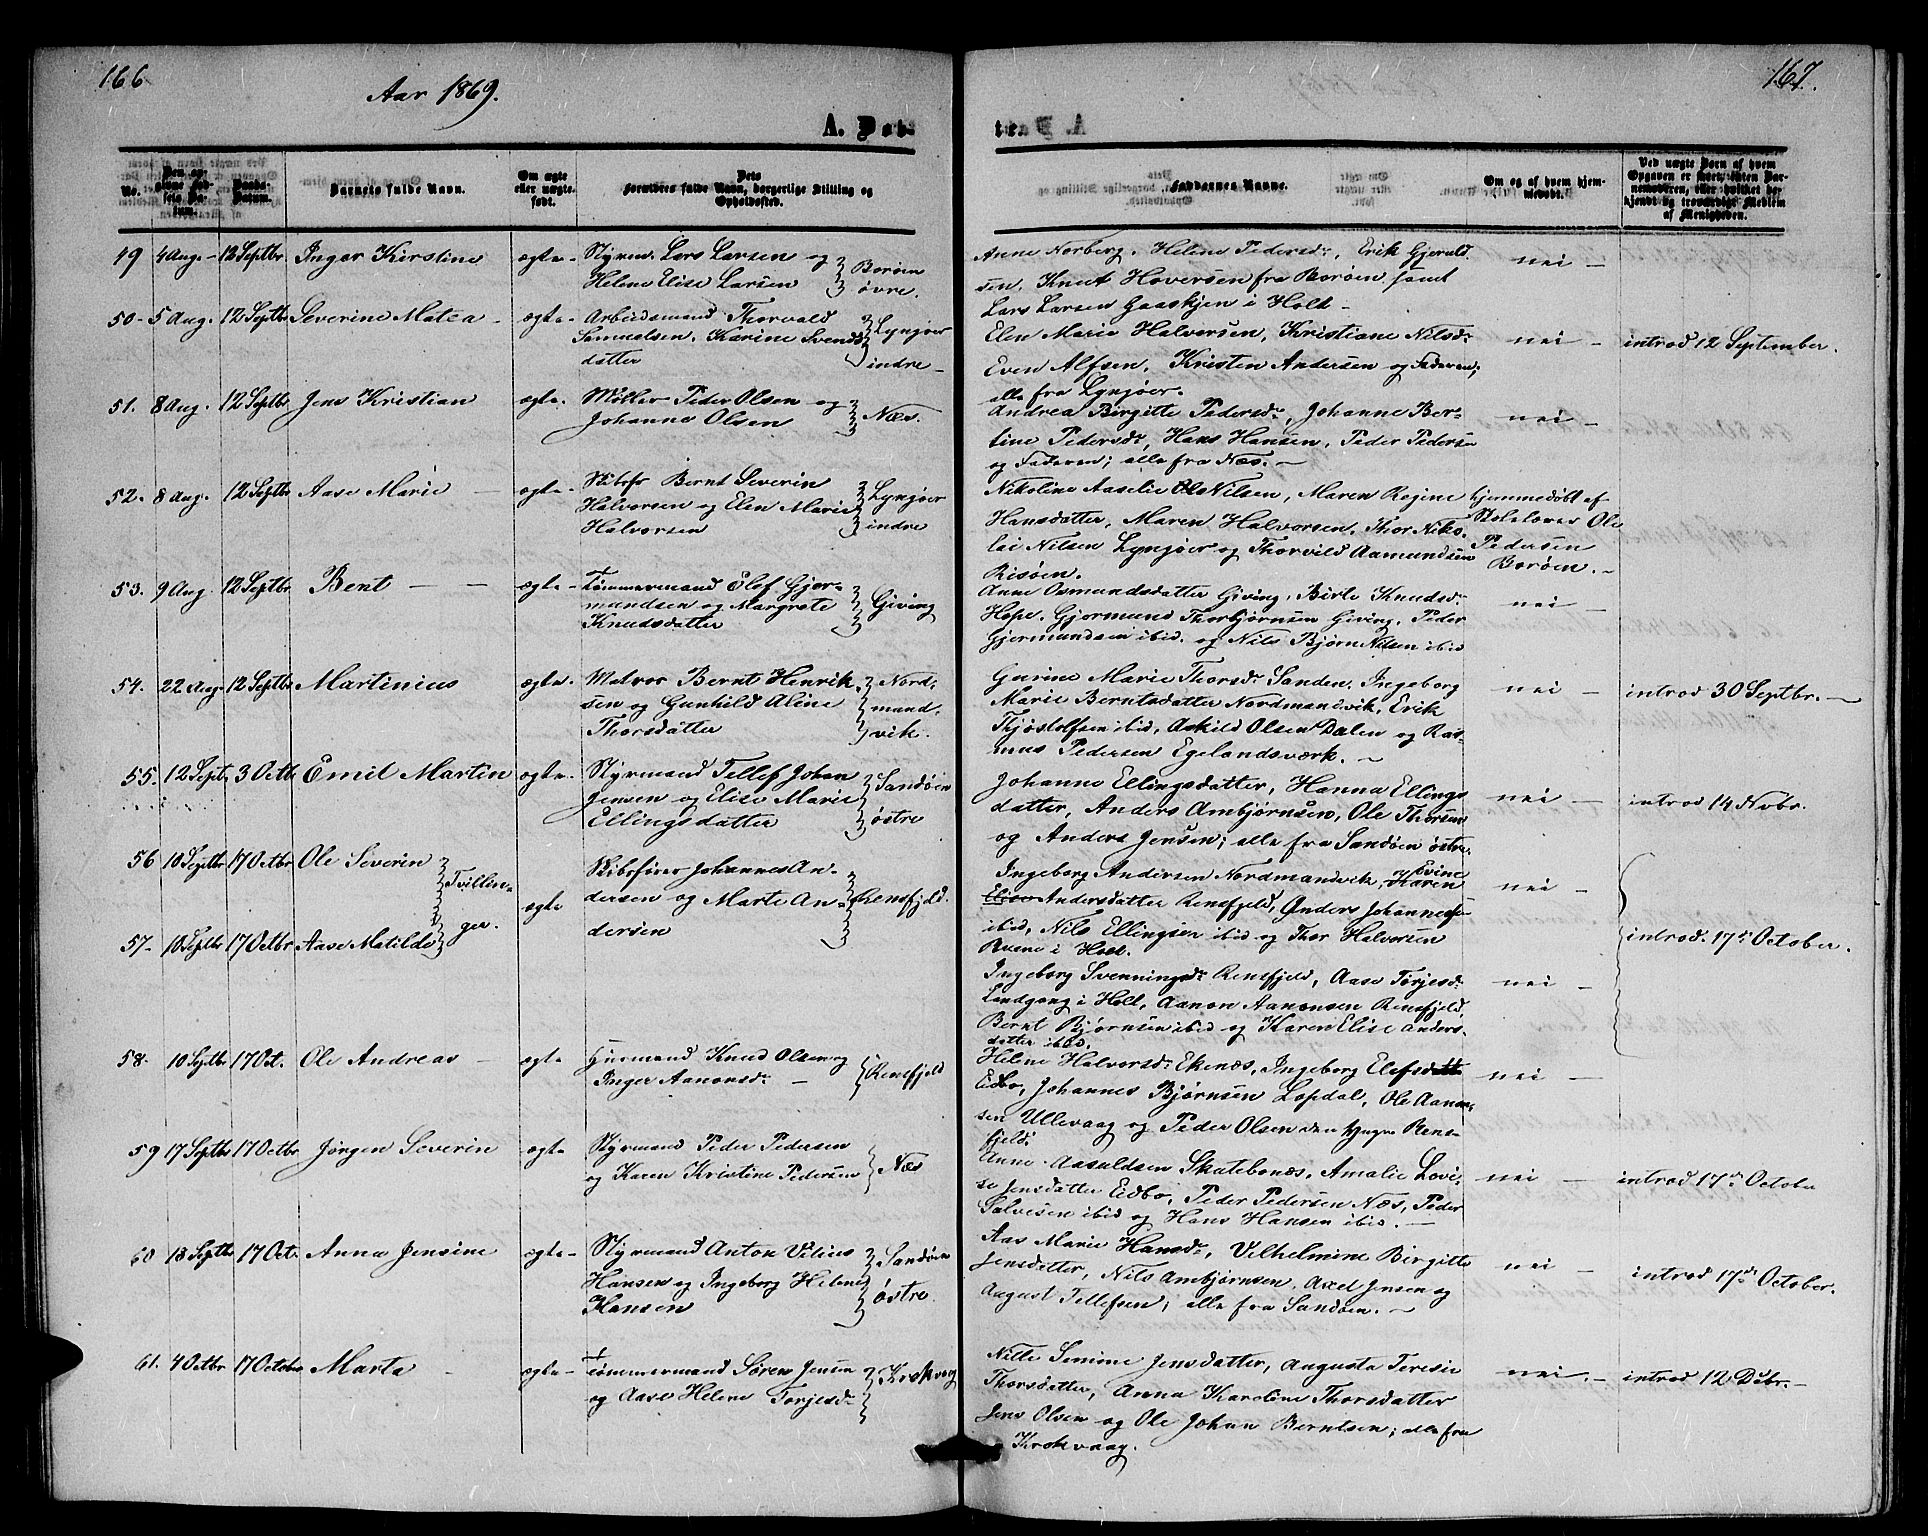 166
Aar 1869.
167.
A. Døb-
te.
No.
Den an-
givne Fød-
sels Da-
tum.
Daabs-
Datum.
Barnets fulde Navn.
Om ægte
eller uægte
født.
Dets
Forældres fulde Navn, borgerlige Stilling og
Opholdssted.
Faddernes Navne.
Om og af hvem hjem-
medøbt.
Ved uægte Born af hvem
Opgaven er skeet, enten Bar-
nemoderen, eller hvilket be-
kjendt og troværdigt Medlem
af Menigheden.
49 4 Aug. 12 Septbr Inger Kirstine ægte Styrm. Lars Larsen og
Helene Elise Larsen
Borøen
øvre.
Anne Norberg, Helene Pedersdr, Erik Gjerald
sen, Knut Haversen fra Borøen samt
Lars Larsen Gaaskjen i Holt
nei
50 5 Aug. 12 Septbr Severine Matea ægte Arbeidsmand Thorvald
Samuelsen, Karine Svends
datter
Lyngøer
indre
Elen Marie Halversen, Kristiane Nilsdr
Even Alfsen, Kristen Andersen og Faderen;
alle fra Lyngøer.
nei introd 12 September.
51. 8 Aug. 12 Septbr Jens Kristian ægte Møller Peder Olsen og
Johanne Olsen
Næs.
Andrea Birgitte Pedersdr, Johanne Ber-
tine Pedersdr, Hans Hansen, Peder Pedersen
og Faderen; alle fra Næs.
nei
52. 8 Aug. 12 Septbr Aase Marie ægte Skibsfr Bernt Severin
Halvorsen og Elen Marie
Halvorsen
Lyngøer
indre
Nikoline Aaselie Nilsen, Maren Regine
Hansdatter, Maren Halvorsen, Thor Niko-
lai Nilsen Lyngøer og Thorvild Aamundsen
Risøen.
hjemmedøbt af
Skolelærer Ole
Pedersen
Borøen.
53. 9 Aug. 12 Septbr Bent ægte Tømmermand Elef Gjer-
mundsen og Margrete
Knudsdatter
Giving
Anne Osmundsdatter Giving, Birte Knudsdr
Hope, Gjermund Thorbjørnsen Giving, Peder
Gjermundsen ibid. og Nils Bjørn Nilsen ibid
nei
54. 22 Aug 12 Septbr Martinius ægte Matros Bernt Henrik
sen og Gunhild Aline
Thorsdatter
Nord-
mand-
vik.
Gurine Marie Thorsdr Sanden, Ingeborg
Marie Berntsdatter Nordmandvik, Erik
Thjøstolfsen ibid, Askild Olsen Dalen og Ras-
mus Pedersen Egelandsværk.
nei introd 30 Septbr.
55. 12 Sept. 3 Octb Emil Martin ægte Styrmand Tellef Johan
Jensen og Elise Marie
Ellingsdatter
Sandøen
østre
Johanne Ellingsdatter, Hanna Ellings
datter, Anders Ambjørnsen, Ole Thorsen
og Anders Jensen; alle fra Sandøen østre.
nei introd 14 Nvbr.
56 10 Septbr 17 Octbr Ole Severin
Tvillin-
ger.
ægte Skibsfører Johannes An-
dersen og Marte An-
dersen
Rensfjeld.
Ingeborg Andersen Nordmandvik, Karen Evine
Elise Andersdatter Rensfjeld, Anders Johannesen
ibid, Nils Ellingsen ibid og Thor Halversen
i Holt.
nei
57 10 Septbr 17 Octbr Aase Matilde
introd. 17de October.
Ingeborg Svenningsdr Rensfjeld, Aase Torjesdr
Landgang i Holt, Aanon Aanonsen Rensfjeld,
Bernt Bjørnsen ibid og Karen Elise Anders-
datter ibid.
nei
58. 10 Septbr. 17 Oct. Ole Andreas ægte Huusmand Knud Olsen og
Inger Aanonsdr
Rensfjeld
Helene Halvorsdr Ekenæs, Ingeborg Elefsdatter
Eidbo, Johannes Bjørnsen Lopdal, Ole Aanon-
sen Ullevaag og Peder Olsen den yngre Rens-
fjeld.
nei
59 17 Septbr 17 Octbr Jørgen Severin ægte Styrmand Peder Pedersen
og Karen Kristine Pedersen
Næs
Anne Aasuldsen Skatebonæs, Amalie Lovi-
se Jensdatter Eidbo, Peder Pedersen Næs, Peder
Salvesen ibid og Hans Hansen ibid.
nei introd 17de October
60 18 Septbr 17 Oct. Anna Jensine ægte Styrmand Anton Vilius
Hansen og Ingeborg Helene
Hansen
Sandøen
østre.
Aas Marie Hansdr, Vilhelmine Birgitte
Jensdatter, Nils Ambjørnsen, Axel Jensen og
August Tellefsen; alle fra Sandøen.
nei introd 17de October.
61. 4 Octbr 17 October Marta ægte Tømmermand Søren Jensen
og Aase Helene Torjesdr
Krokvag
Nille Simine Jensdatter, Augusta Teresie
Thorsdatter, Anna Karoline Thorsdatter
Jens Olsen og Ole Johan Berntsen; alle fra
Krokvaag.
nei. introd 12 Dcbr.